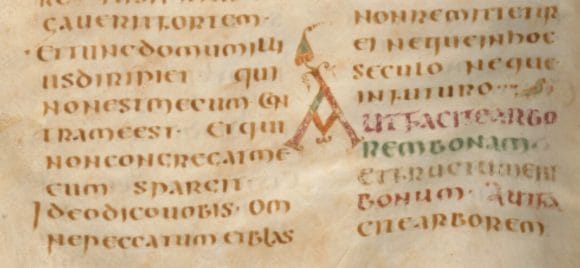 GAUERITFORTEM·
·ETTUNCDOMUMILLI
USDIRIPIET QUI
NONESTMECUM CON
TRAMEEST· ETQUI
NONCONGREGATME
CUM SPARGIT·
IDEODICOUOBIS· OM
NEPECCATUM ETBLAS
NONREMITTETUR
EI NEQUEINHOC
SECULO NEQUE
INFUTURO·
AUTFACITEARBO
REMBONAM·
ETFRUCTUMEIUS
BONUM· AUTFA
CITEARBOREM